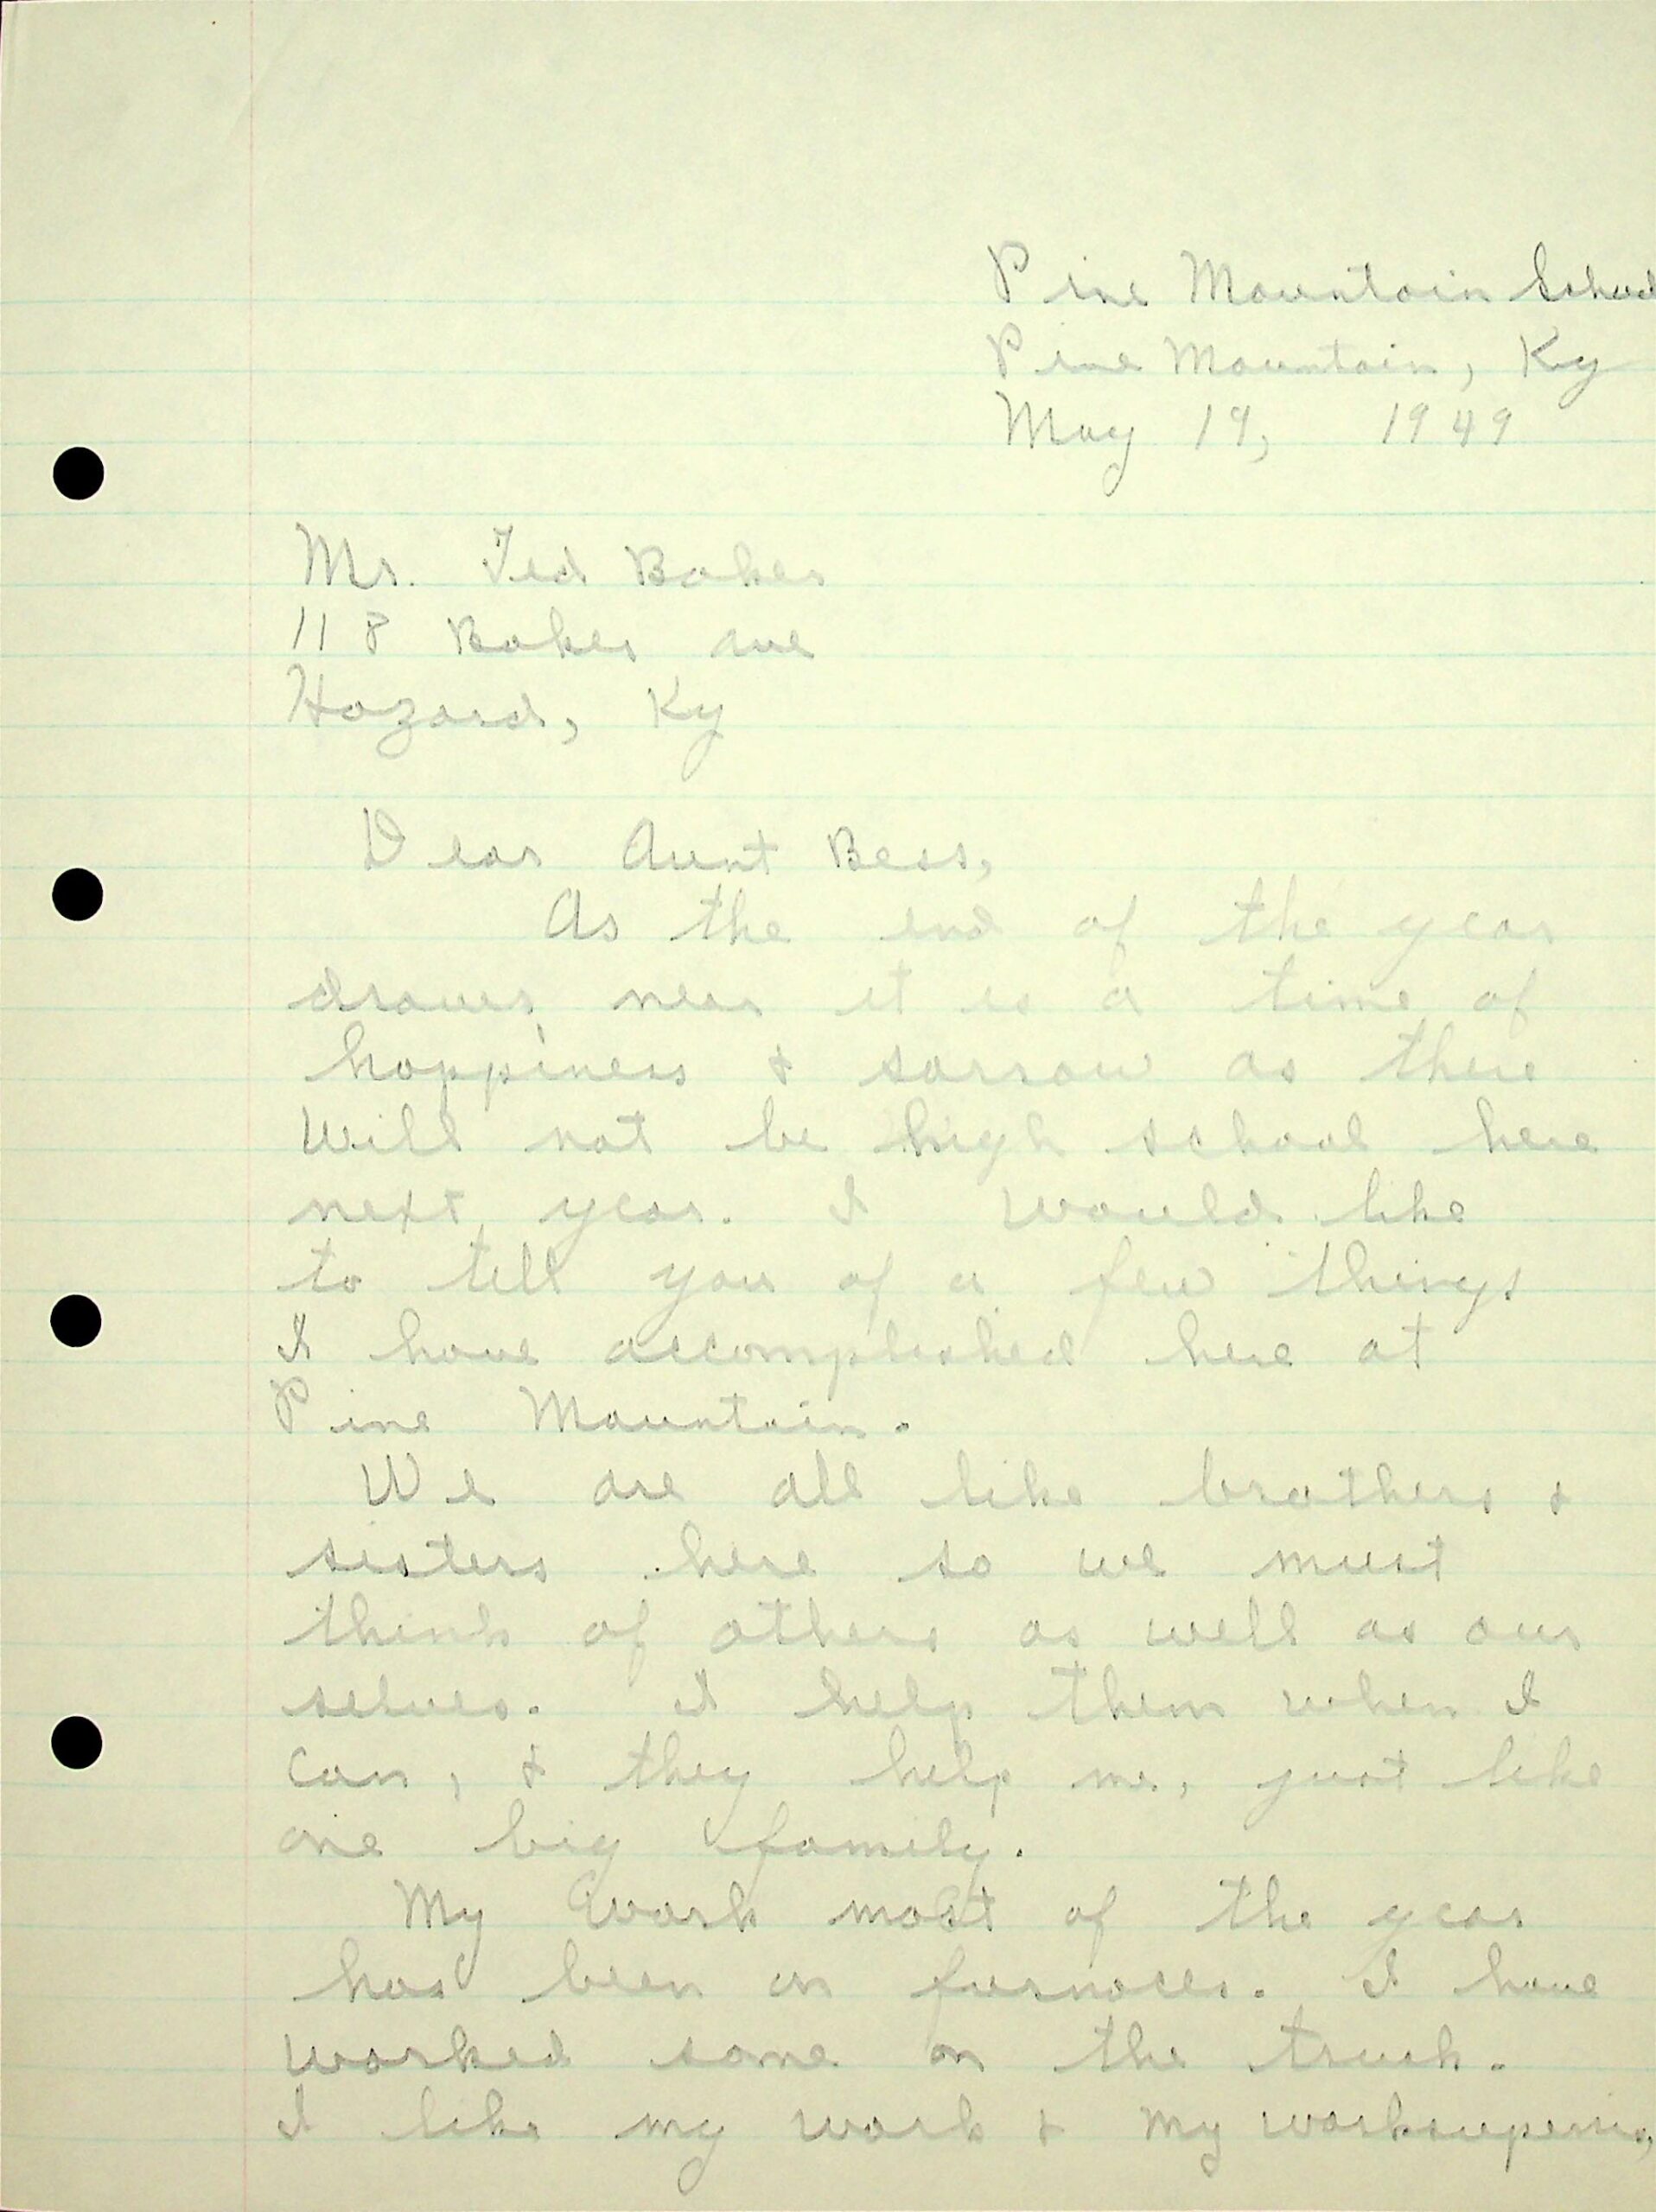 Pine Mountain School
Pine Mountain, Ky
May 19, 1949
Mr. Ted Baker
118 Baker ave
Hazard, Ky
Dear Aunt Bess,
As the end of the year
draws near it is a time of
happiness & sorrow as there
will not be high school here
next year. I would like
to tell you of a few things
I have accomplished here at
Pine Mountain.
We are all like brothers &
sisters here so we must
think of others as well as our
selves. I help them when I
can, & they help me, just like
one big family.
My work most of the year
has been on furnaces. I have
worked some on the truck.
I like my work & my